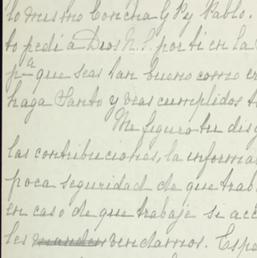 lo mismo Concha G P y Pablo.
to pedí a Dios N. S. por ti en la
pª que seas tan bueno como er
haga Santo y veas cumplidos t
Me figuro tu dis
las contribuciones, la informa
poca seguridad de que trab
en caso de que trabaje si acc
les vendamos. Espe